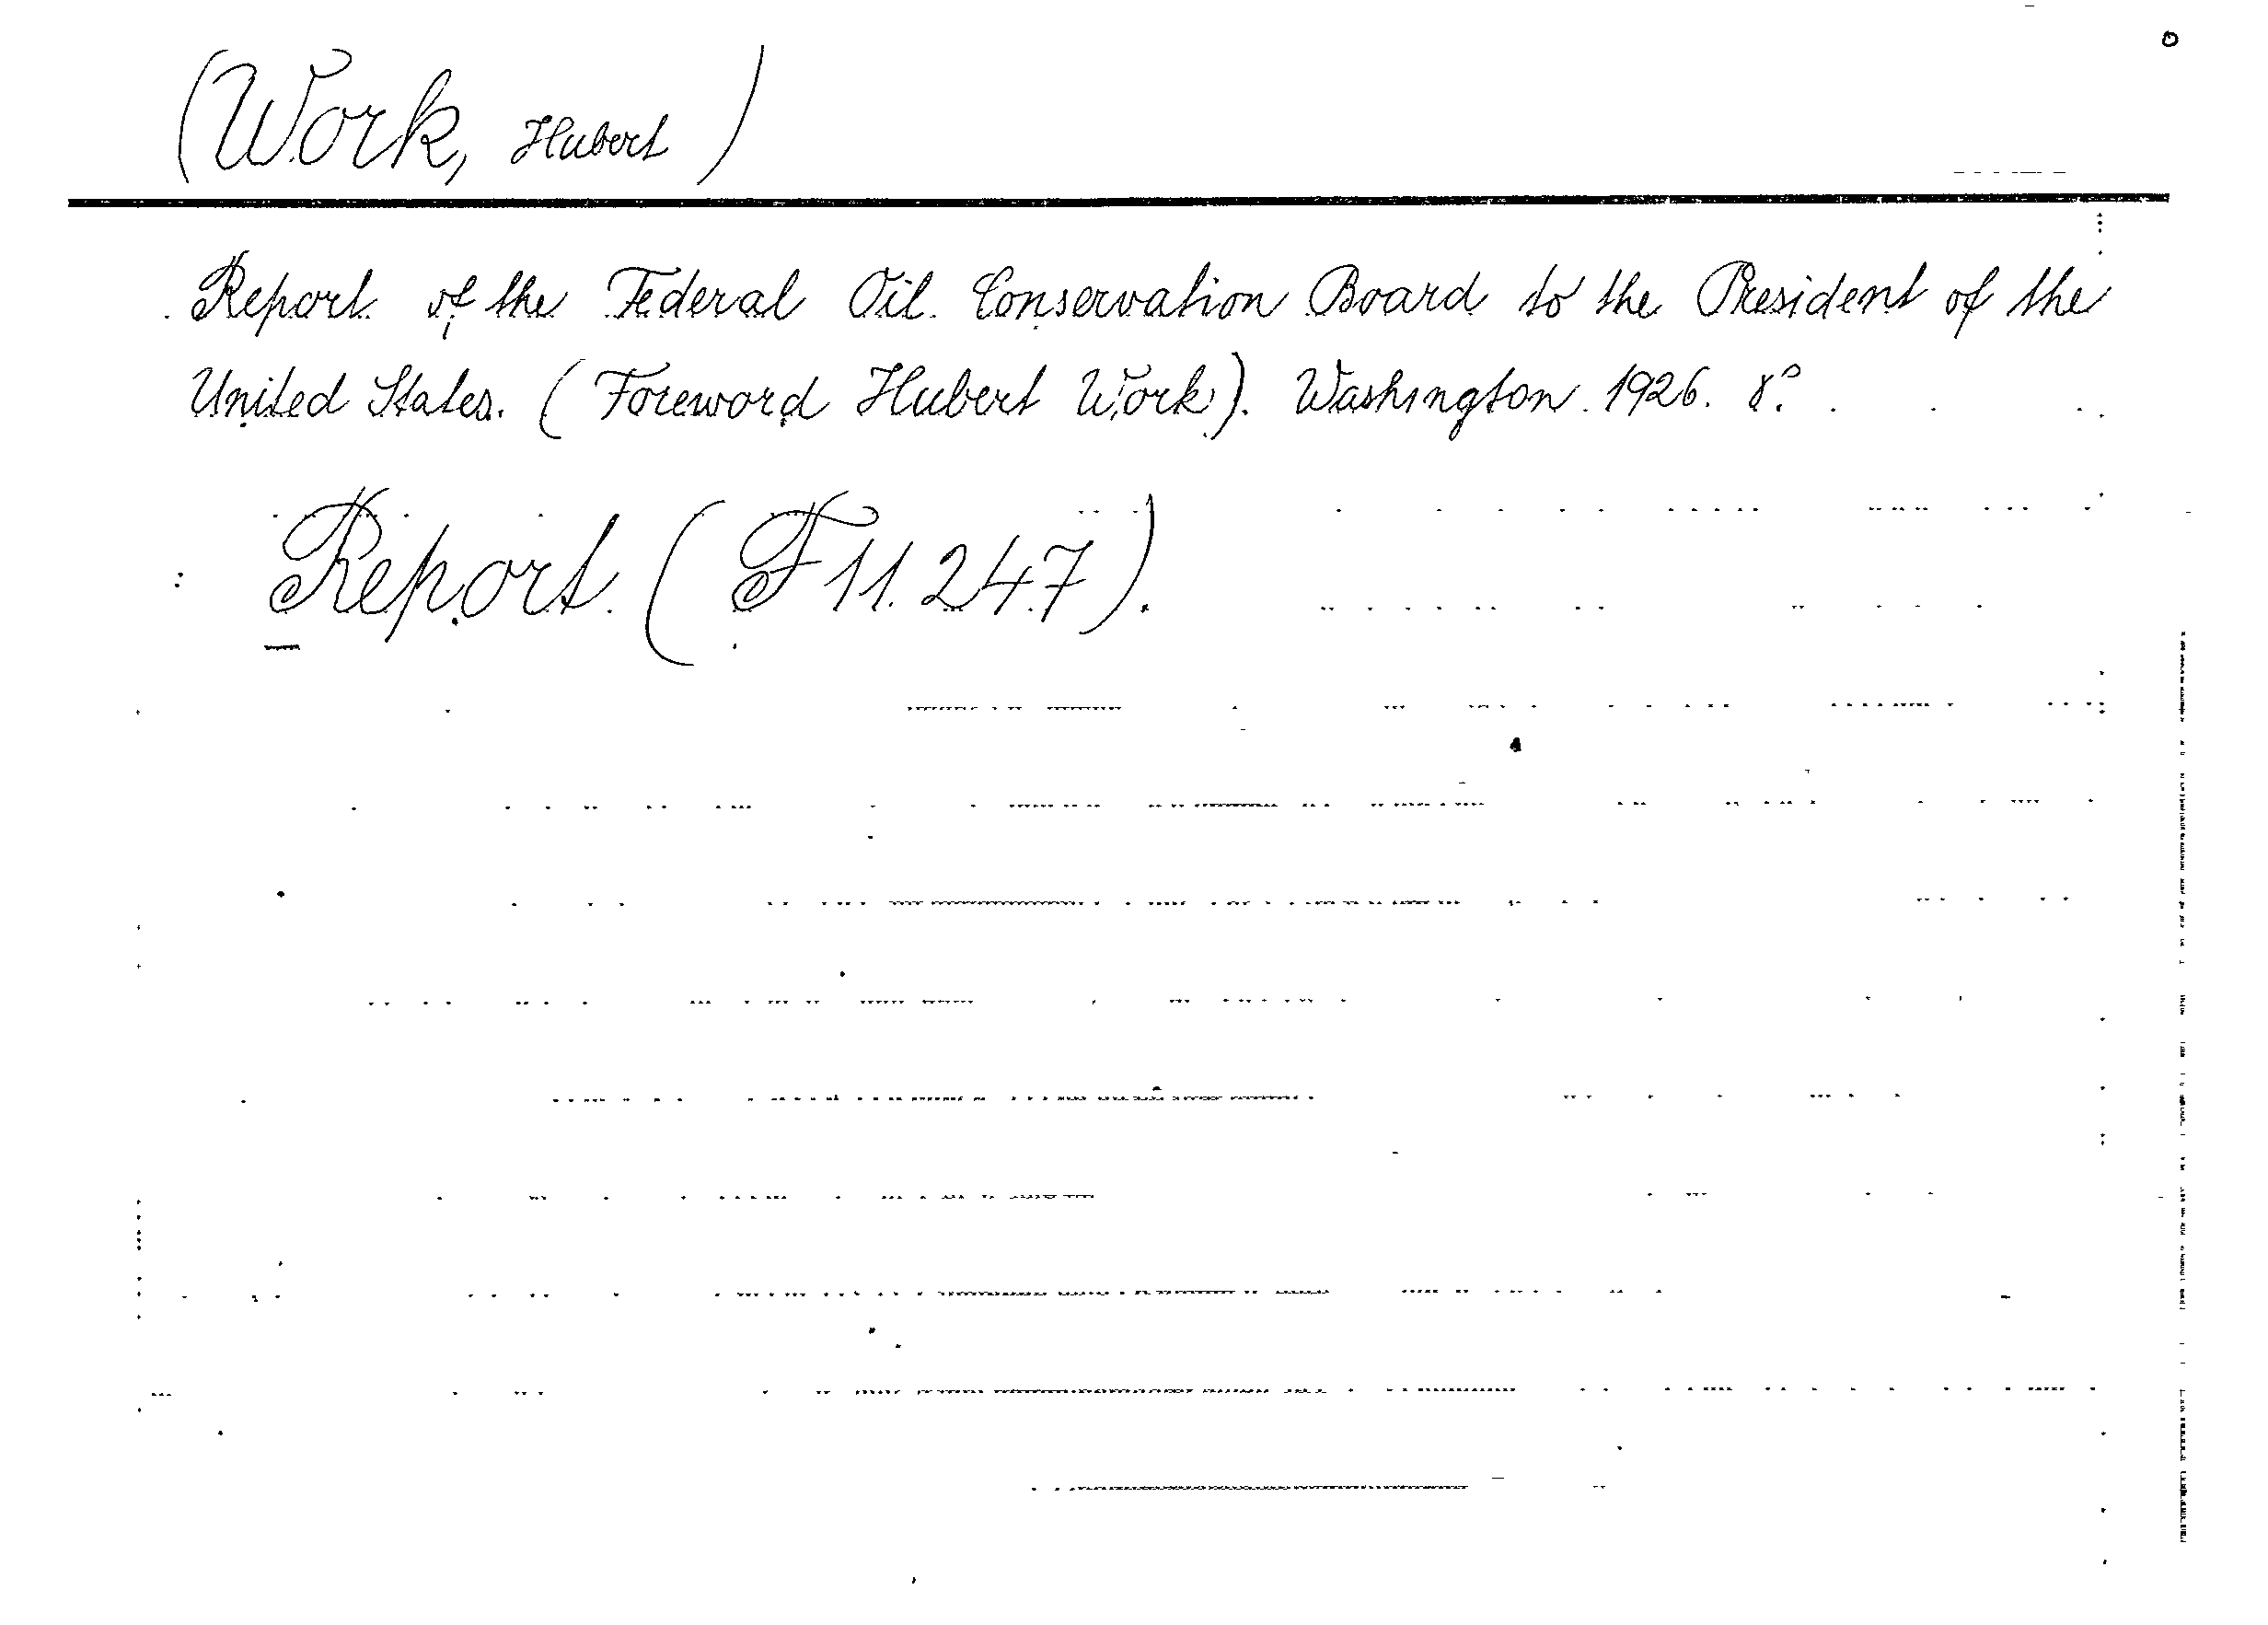 (Work, Hubert)
Report of the Federal Oil Conservation Board to the President of the
United States. (Foreword Hubert Work). Washington 1926. 8°.
Report (F 11.247).